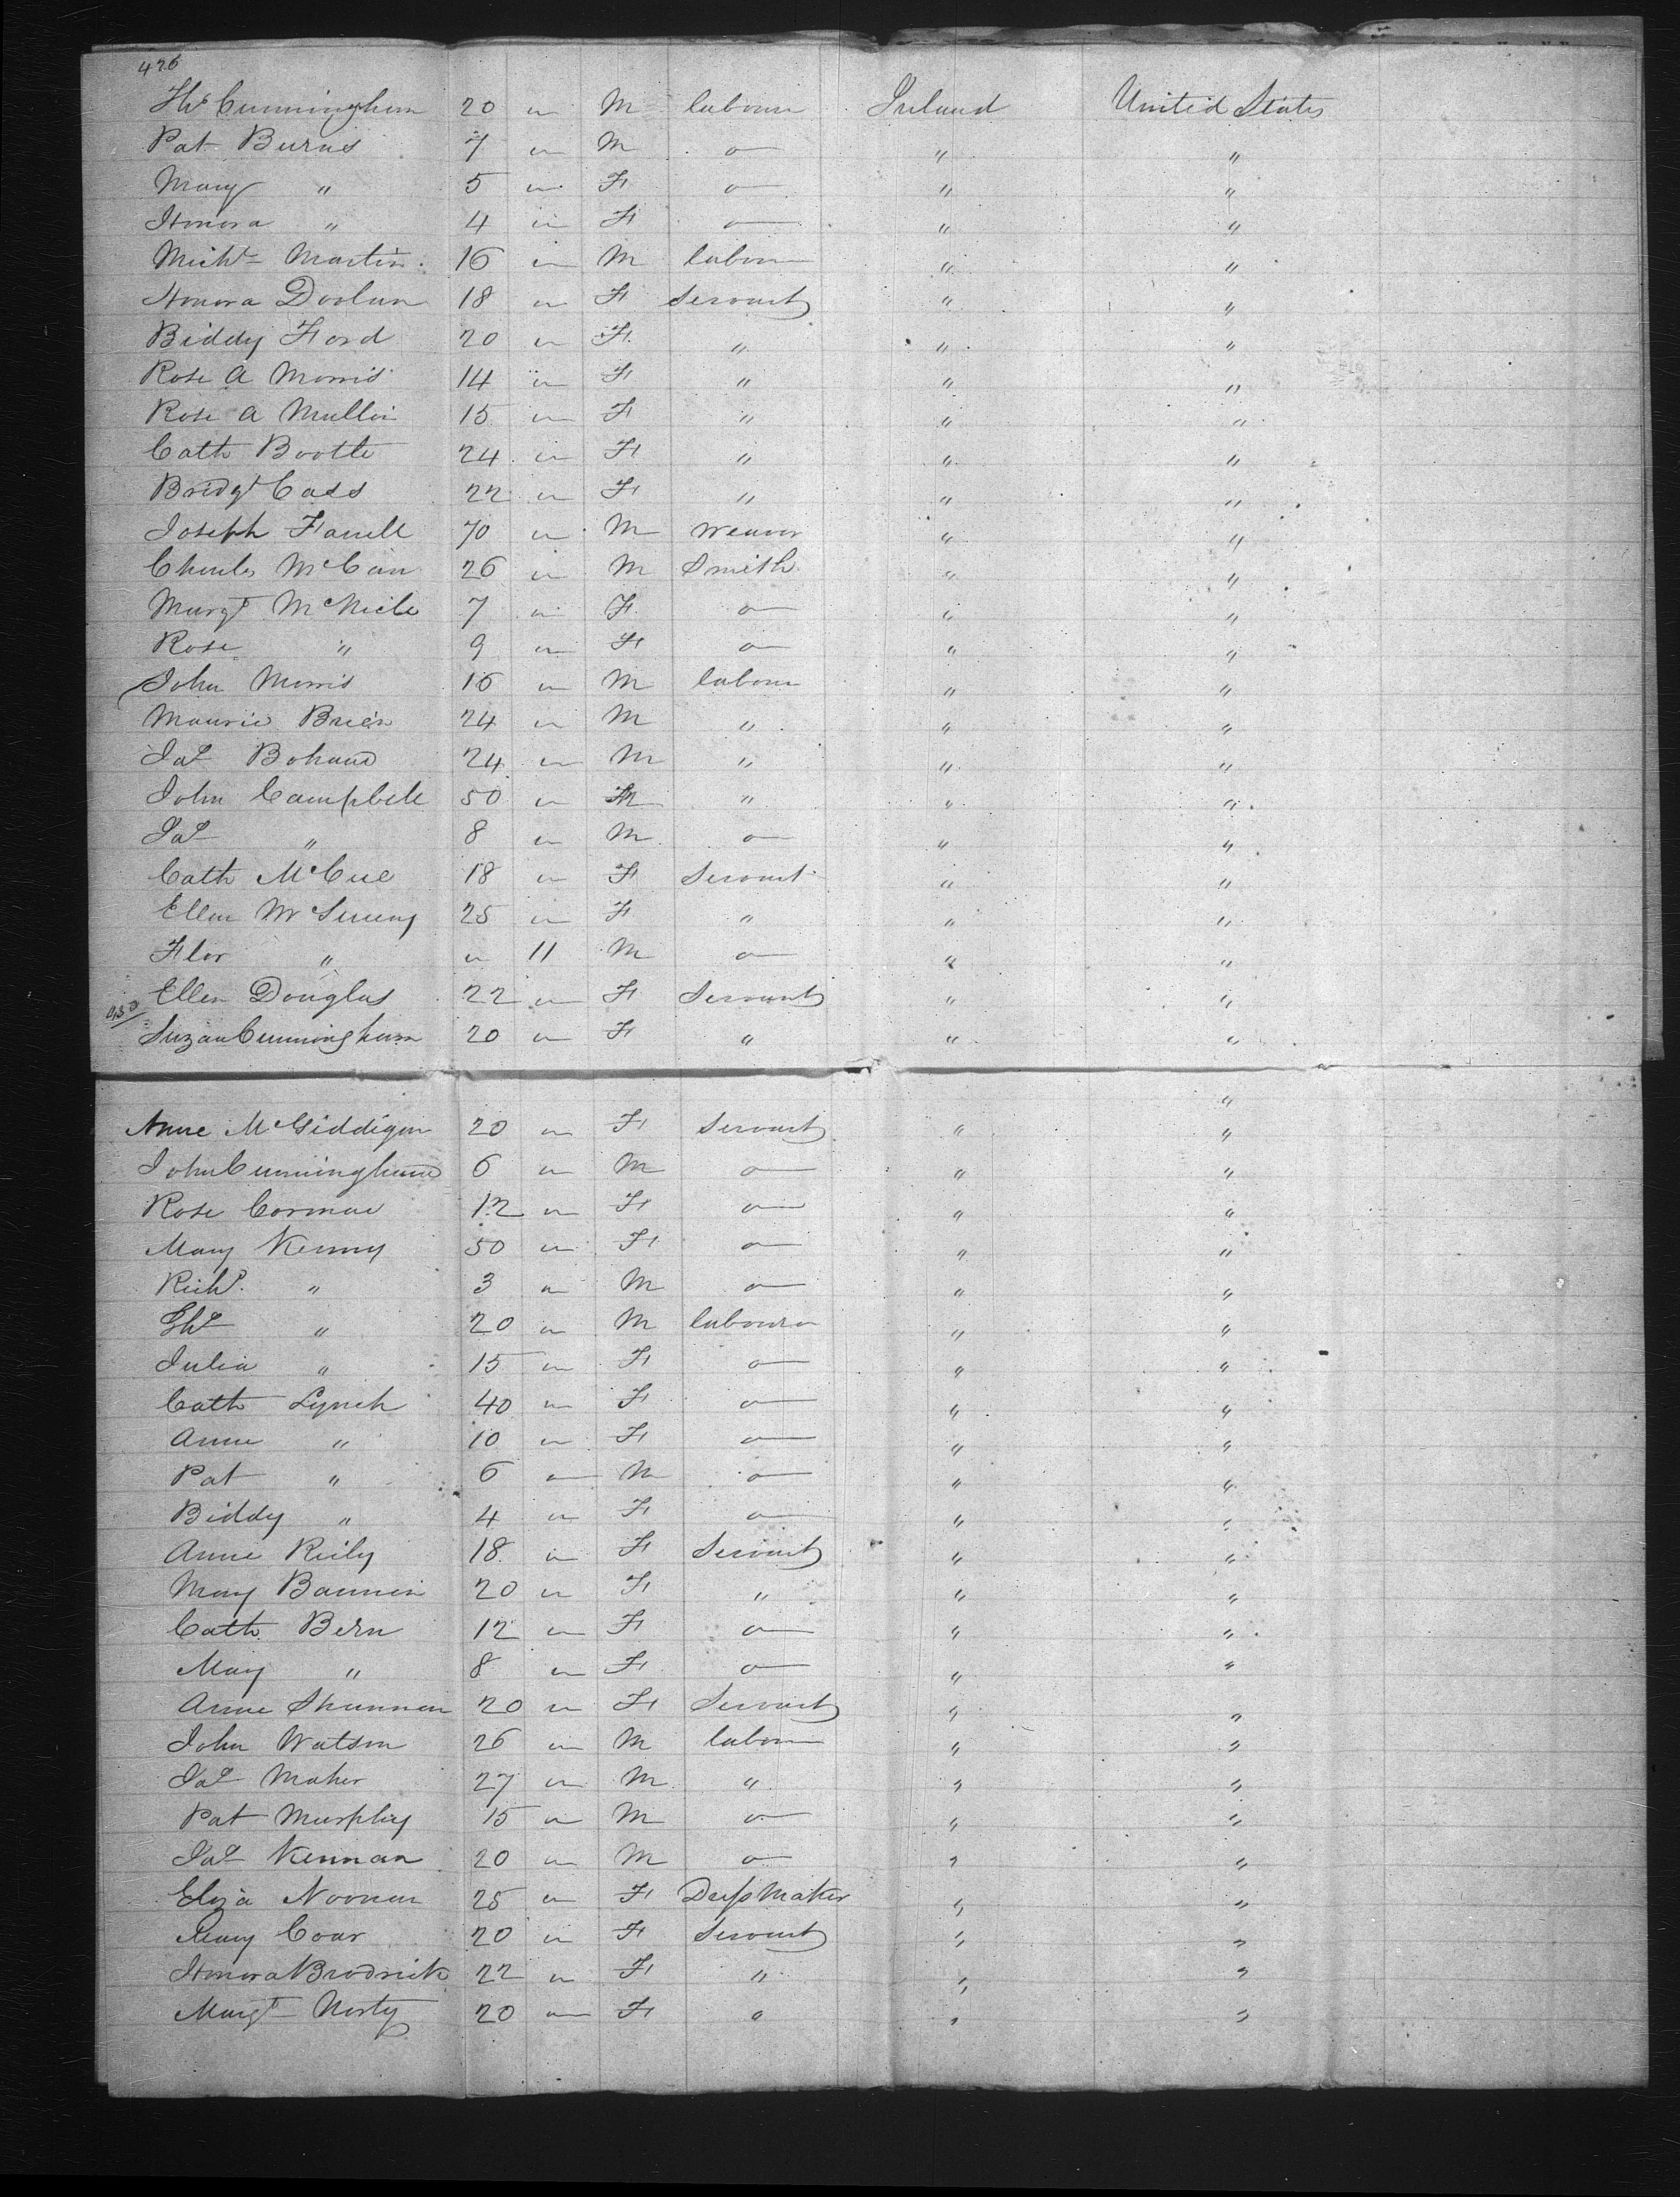 426
Thos Cunningham 20 " M labourer Ireland United States
Pat Burns 7 " M — " "
Mary " 5 " F — " "
Honora " 4 " F — " "
Michl Martin 16 " M labour " "
Honora Doolan 18 " F Servant " "
Biddy Ford 20 " F " " "
Rose A Morris 14 " F " " "
Rose A Mullin 15 " F " " "
Cath Bootle 24 " F " " "
Bridgt Cass 22 " F " " "
Joseph Farrell 70 " M Weaver " "
Charles McCan 26 " M Smith " "
Margt McNicle 7 " F — " "
Rose " 9 " F — " "
John Morris 16 " M labour " "
Maurice Brien 24 " M " " "
Jas Bohand 24 " M " " "
John Campbell 50 " M " " "
Jas " 8 " M — " "
Cath McCue 18 " F Servant " "
Ellen McSweeny 25 " F " " "
Flor " " 11 M — " "
Ellen Douglas 22 " F Servant " "
Suzan Cunningham 20 " F " " "
"
Anne McGiddigan 20 " F Servant " "
John Cunningham 6 " M — " "
Rose Cormac 12 " F — " "
Mary Kenny 50 " F — " "
Richd " 3 " M — " "
Thos " 20 " M labourer " "
Julia " 15 " F — " "
Cath Lynch 40 " F — " "
Anne " 10 " F — " "
Pat " 6 " M — " "
Biddy " 4 " F — " "
Anne Reily 18 " F Servant " "
Mary Bannin 20 " F " " "
Cath Bern 12 " F — " "
Mary " 8 " F — " "
Anne Shannan 20 " F Servant " "
John Watson 26 " M labour " "
Jas Maher 27 " M " " "
Pat Murphy 15 " M — " "
Jas Kennan 20 " M — " "
Eliza Noonan 25 " F Dress Maker " "
Mary Coar 20 " F Servant " "
Honora Brodrick 22 " F " " "
Margt Norty 20 " F " " "